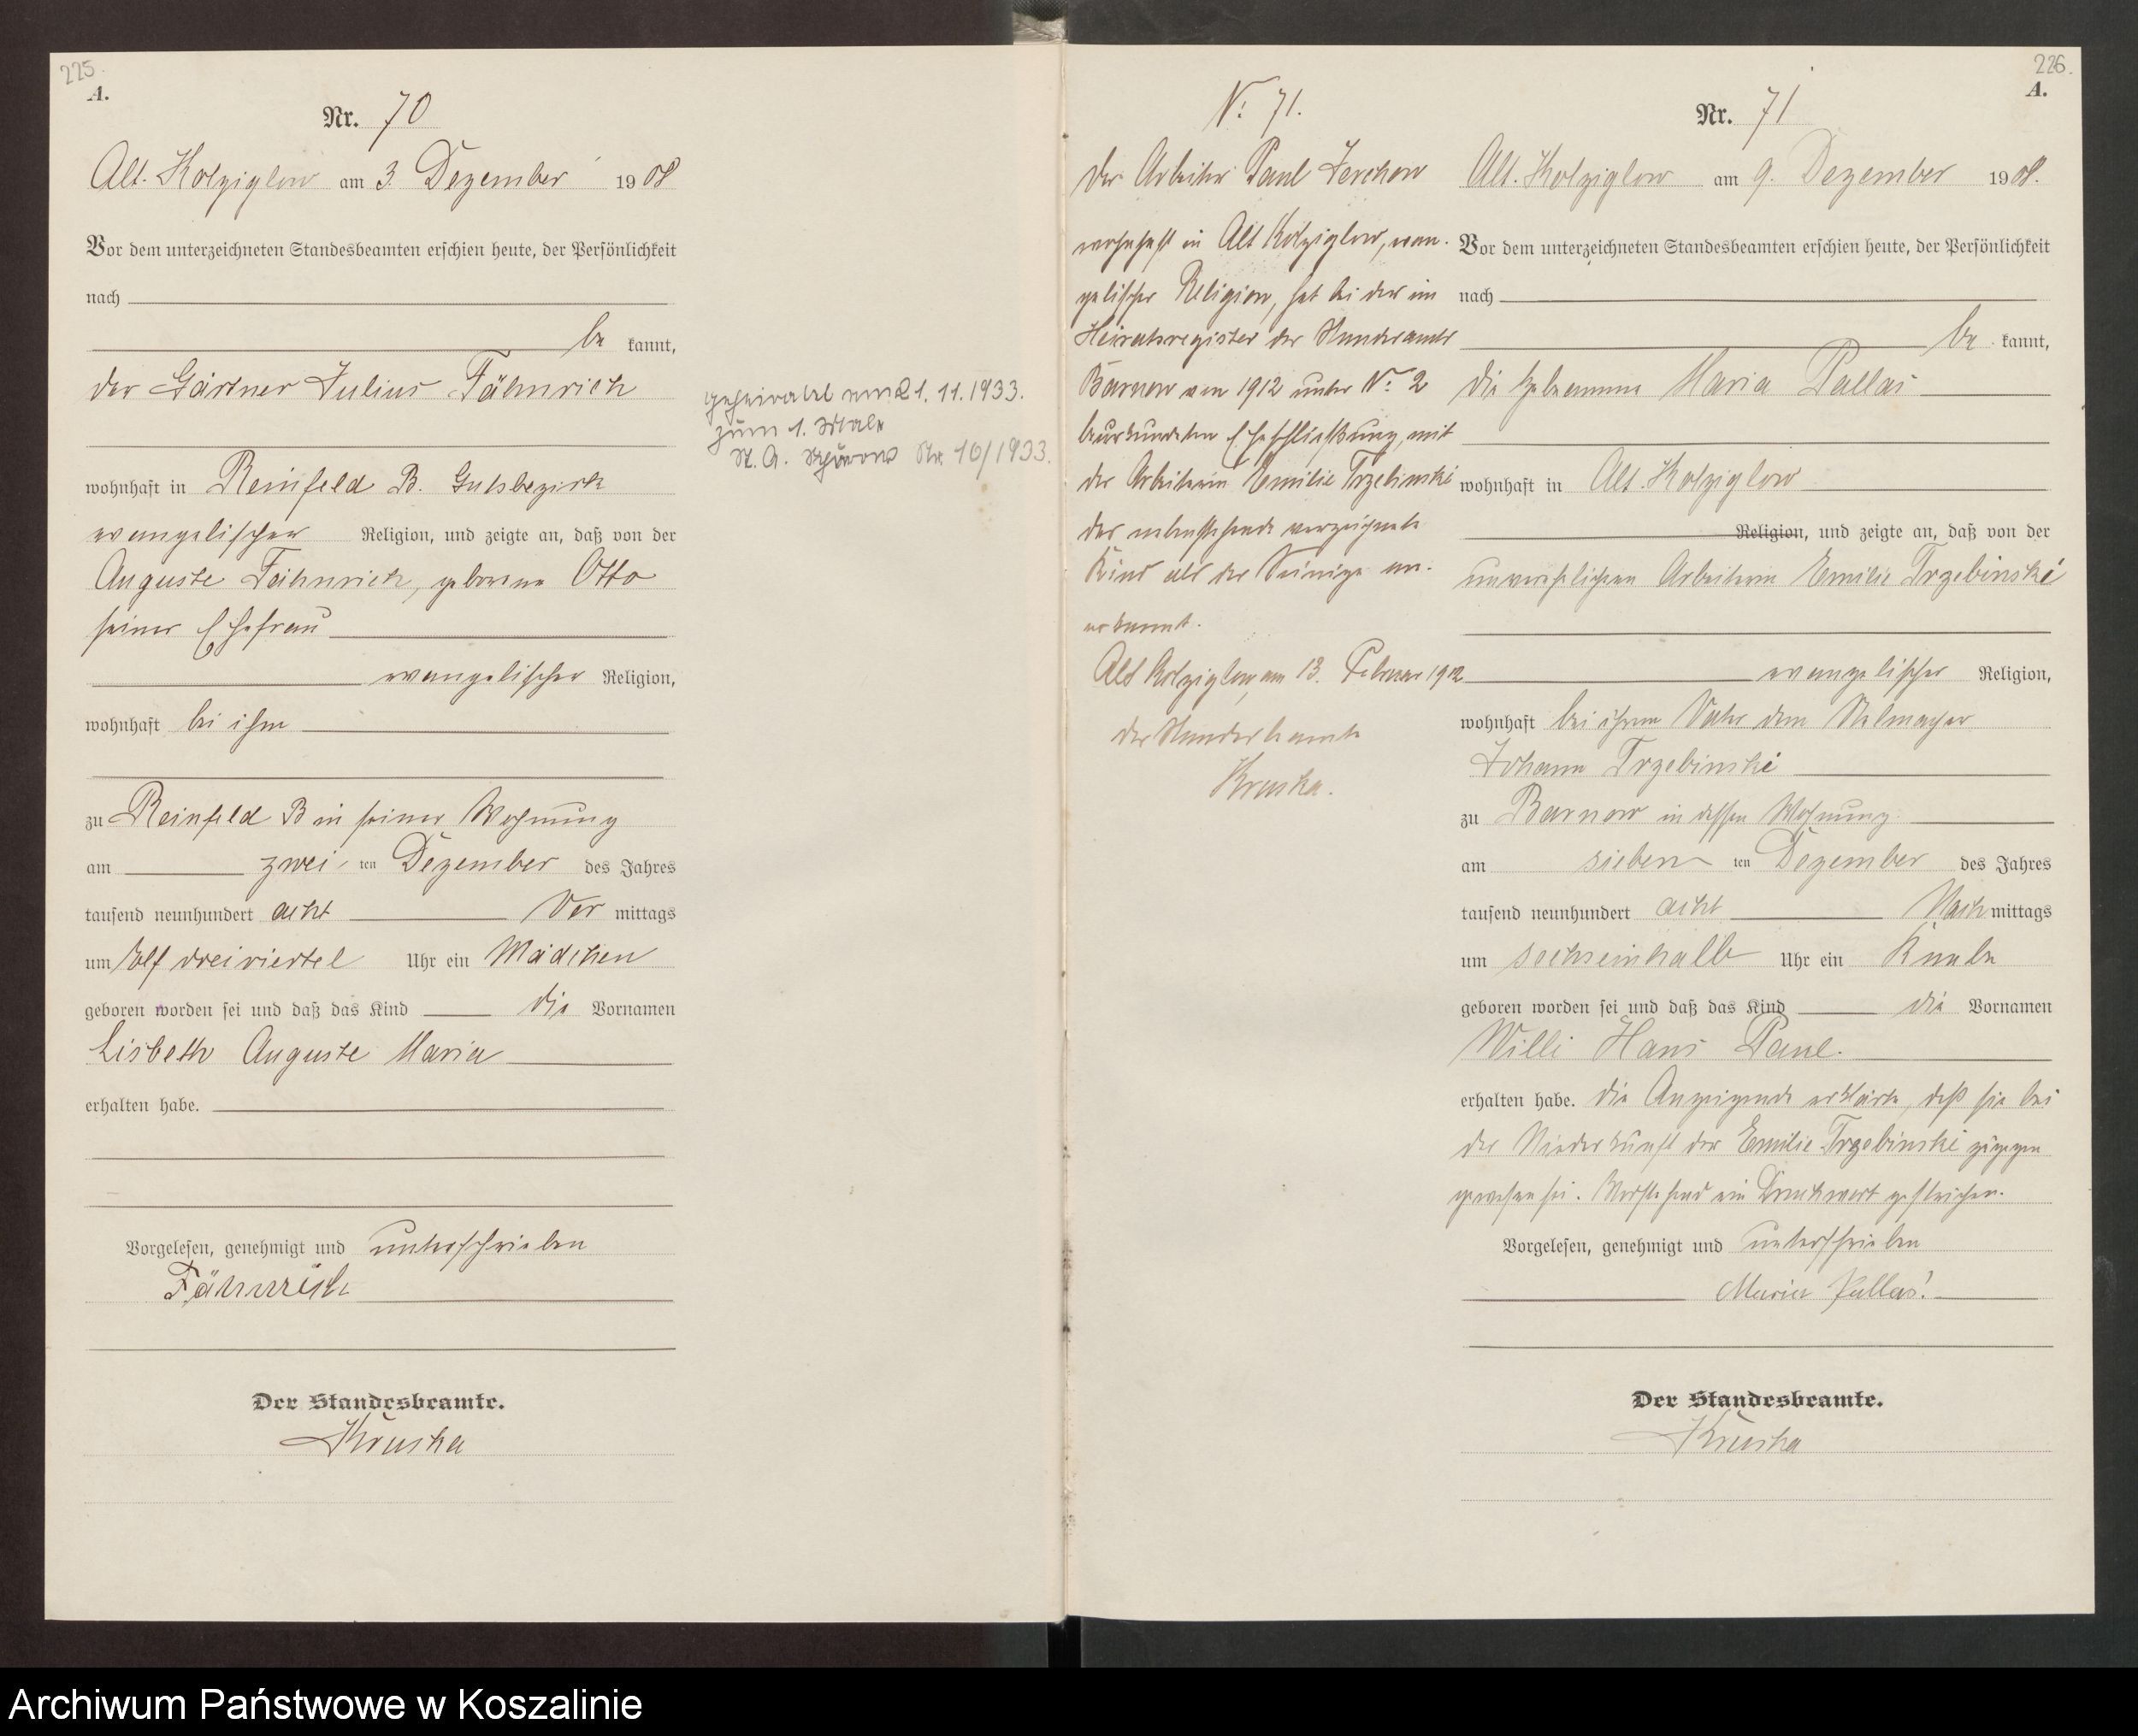 225.
A.
Nr. 70
Alt. Kolziglow am 3. Dezember 1908
Vor dem unterzeichneten Standesbeamten erschien heute, der Persönlichkeit
nach
be kannt,
der Gärtner Julius Fähnrich
wohnhaft in Reinfeld B. Gutsbezirk
evangelischer Religion, und zeigte an, daß von der
Auguste Fähnrich, geborene Otto
seiner Ehefrau
evangelischer Religion,
wohnhaft bei ihm
zu Reinfeld B in seiner Wohnung
am zwei ten Dezember des Jahres
tausend neunhundert acht Vor mittags
um Elf dreiviertel Uhr ein Mädchen
geboren worden sei und daß das Kind die Vornamen
Lisbeth Auguste Maria
erhalten habe.
Vorgelesen, genehmigt und unterschrieben
Fähnrich
Der Standesbeamte.
Kruska
geheiratet am 21.11.1933.
zum 1. Male
St. A. Nr. 10/1933.
No 71.
Der Arbeiter Paul Jerchow
wohnhaft in Alt Kolziglow, evan-
gelischer Religion, hat bei der im
Heiratsregister des Standesamts
Barnow von 1912 unter No 2
beurkundeten Eheschließung mit
der Arbeiterin Emilie Trzebinski
das nebenstehende verzeichnete
Kind als das Seinige an-
erkannt.
Alt Kolziglow, am 13. Februar 1912
Der Standesbeamte
Kruska.
226.
A.
Nr. 71
Alt. Kolziglow am 9. Dezember 1908.
Vor dem unterzeichneten Standesbeamten erschien heute, der Persönlichkeit
nach
be kannt,
die Hebamme Maria Pallas
wohnhaft in Alt. Kolziglow
Religion, und zeigte an, daß von der
unverehelichten Arbeiterin Emilie Trzebinski
evangelischer Religion,
wohnhaft bei ihrem Vater dem Stelmacher
Johann Trzebinski
zu Barnow in dessen Wohnung
am sieben ten Dezember des Jahres
tausend neunhundert acht Nach mittags
um sechseinhalb Uhr ein Knabe
geboren worden sei und daß das Kind die Vornamen
Willi Hans Paul.
erhalten habe. Die Anzeigende erklärte, daß sie bei
der Niederkunft der Emilie Trzebinski zugegen
gewesen sei. Vorstehend ein Druckwort gestrichen.
Vorgelesen, genehmigt und unterschrieben
Maria Pallas.
Der Standesbeamte.
Kruska
Archiwum Państwowe w Koszalinie